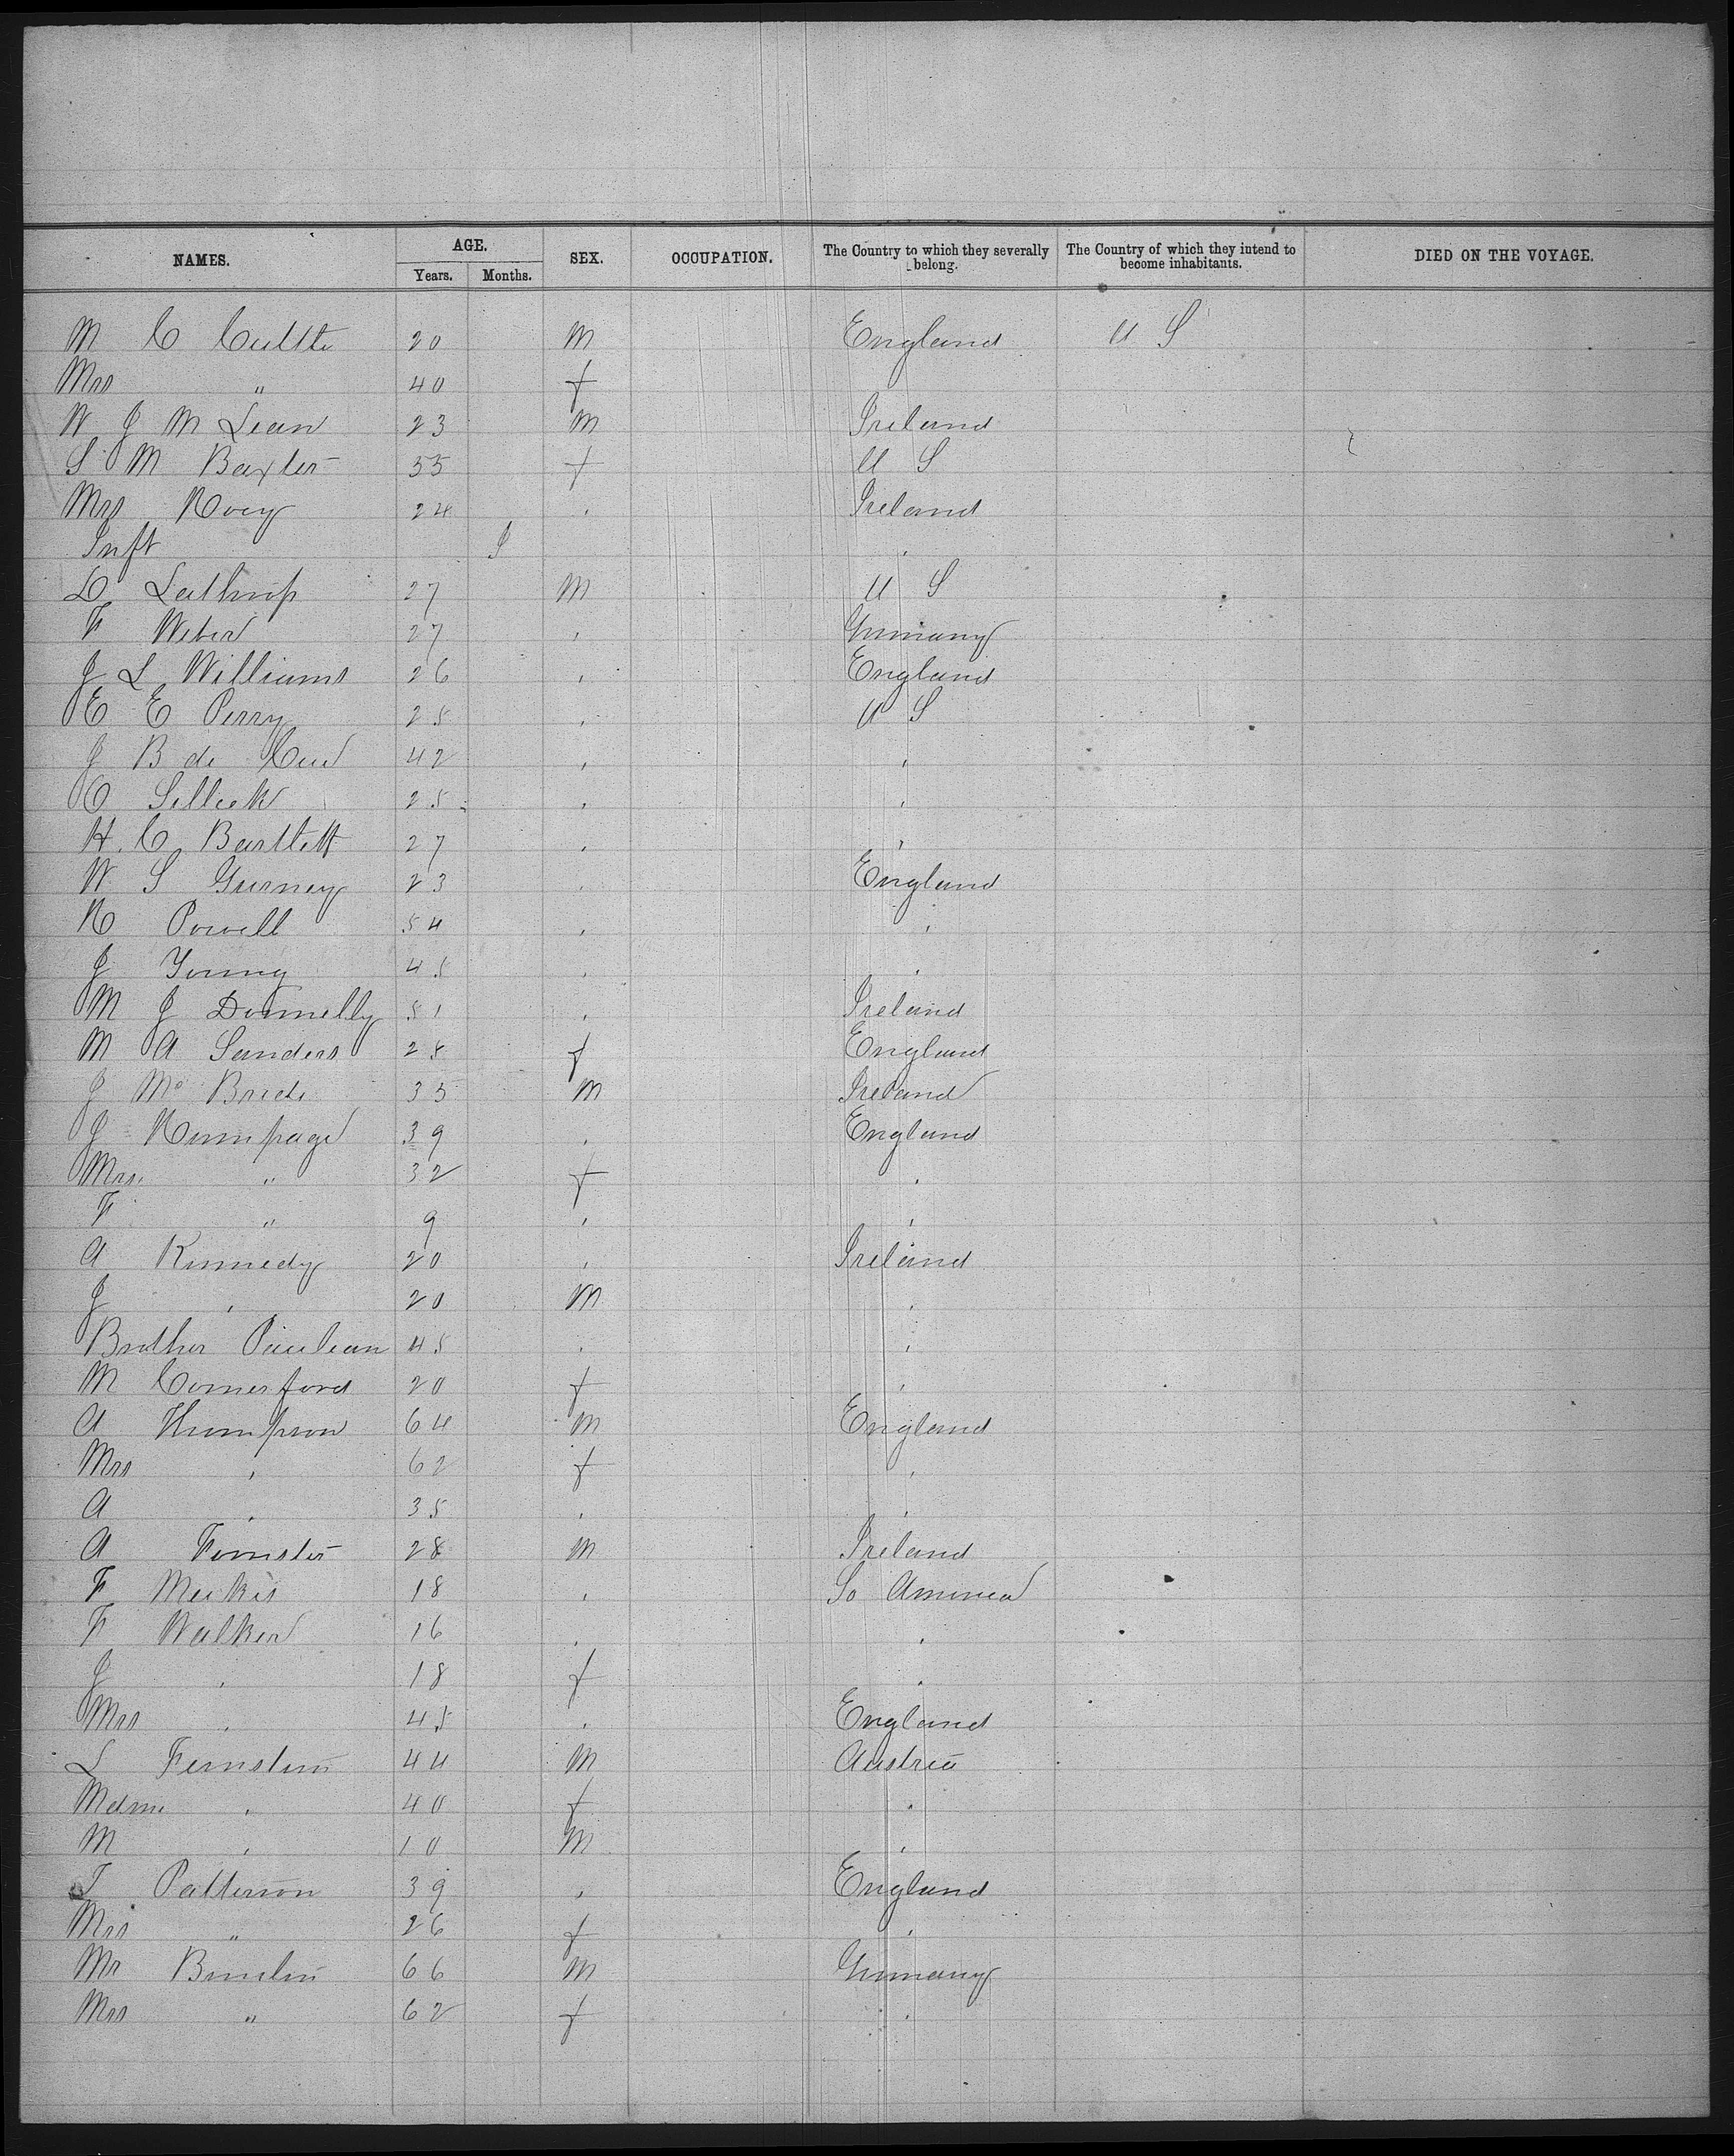 NAMES. AGE. Years. Months. SEX. OCCUPATION. The Country to which they severally belong. The Country of which they intend to become inhabitants. DIED ON THE VOYAGE.
M C 20 M England U S
Mrs " 40 f
W J M Lean 23 M Ireland
S M Baxter 55 f U S
Mrs 24 , Ireland
Inft ,
D Lathrop 27 M U S
F Weber 27 , Germany
J L Williams 26 , England
E E Perry 25 , U S
J B de 42 , ,
C Selleck 25 , ,
H. C Bartlett 27 , ,
W S Gurney 23 , England
R Powell 54 , ,
J Young 45 , ,
M J Donnelly 51 , Ireland
M A Sanders 28 f England
J Mc Bride 35 M Ireland
J Rumpage 39 , England
Mrs. " 32 f ,
F " 9 , ,
A Kennedy 20 , Ireland
J , 20 M ,
Brother 45 , ,
M Comerford 20 f ,
A 64 M England
Mrs , 62 f ,
A , 35 , ,
A 28 M Ireland
F 18 , So America
F Walker 16 , ,
J , 18 f ,
Mrs , 45 , England
L 44 M Austria
Mdme , 40 f ,
M , 10 M ,
T Patterson 39 , England
Mrs " 26 f ,
Mr 66 M Germany
Mrs " 62 f ,